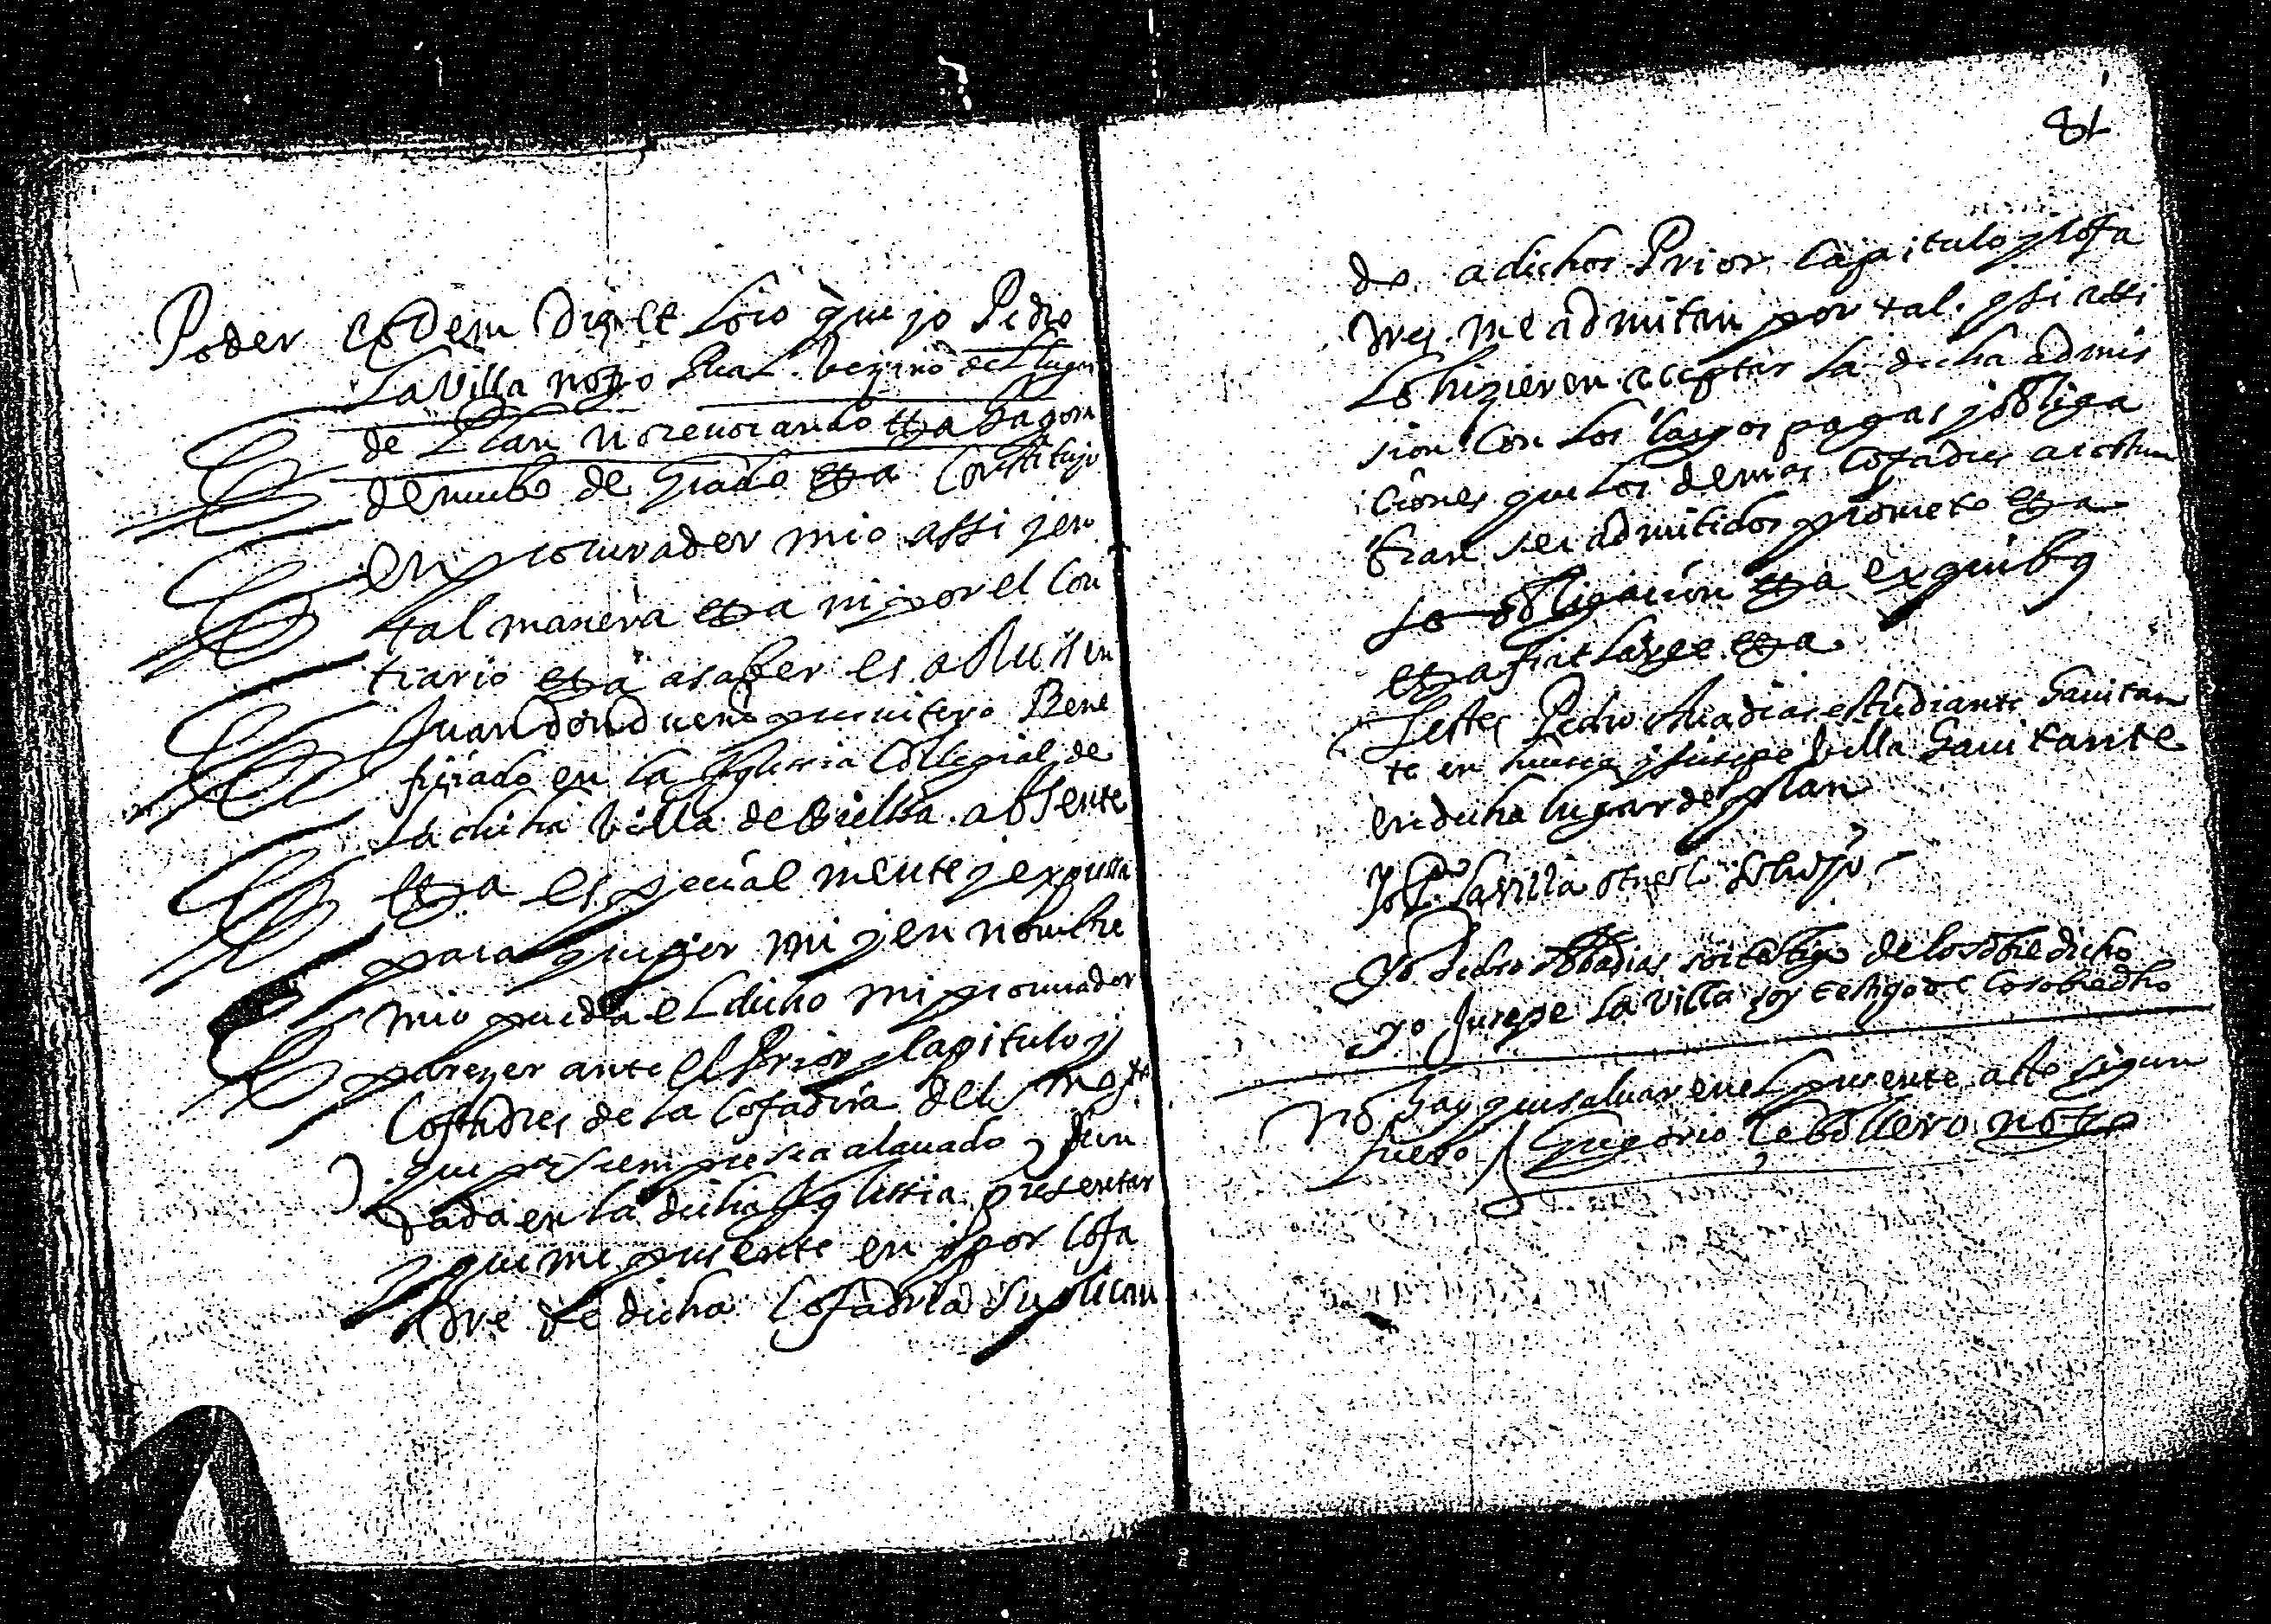 Poder Eodem Die et Loco que yo Pedro
La Villa noto Real vezino del lugar
de Plan no reuocando etta hagora
de nuebo de Grado etta Constituyo
en procurador mio assi y en
tal manera etta ni por el Con
trario etta a saber es a
Juan dondueno presuitero Bene
fiziado en la Iglesia Collegial de
la dicha billa de Bielsa absente
etta especialmente y expressa
para que por mi y en nombre
mio pueda el dicho mi procurador
parezer ante el Prior Capitulo y
Cofadres de la Cofadria del
que por siempre sea alauado y fun
dada en la dicha Yglessia presentar
y que me presente en y por Cofa
dre de dicha Cofadria suplican
81
do a dichos Prior Capitulo y Cofa
dres me admitan por tal y si assi
lo hizieren acceptar la dicha admis
sion Con los Cargos pagas y obliga
ciones que los demas Cofadres acostum
bran ser admitidos prometo etta
so obligacion etta ex quibus
etta fiat large etta
Testes Pedro Auadias estudiante hauitan
te en y Jusepe Villa hauitante
en dicho lugar de plan
Yo P.º Lavilla otorgo lo dicho
Yo Pedro Abadias soi testigo de lo sobre dicho
yo Jusepe La Villa soy testigo de lo sobredho
No hay que saluar en el presente acto segun
fuero Gregorio Cebollero noto